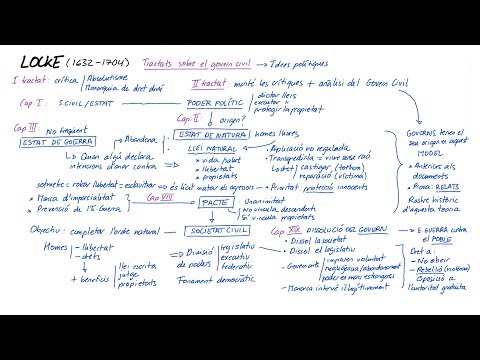 LOCKE (1632-1704) Tractats sobre el govern civil → Idees polítiques
I tractat: crítica Absolutisme
Monarquia de dret diví
II tractat: manté les crítiques + anàlisi del Govern Civil
Cap. I: S. CIVIL/ESTAT → PODER POLÍTIC
dictar lleis
executar "
protegir la propietat
Cap. II: origen?
Cap III: No freqüent
ESTAT DE GUERRA
Abandona
Quan algú declara
intencions d'anar contra
ESTAT DE NATURA Homes lliures
LLEI NATURAL
• vida, salut
• llibertat
• propietats
• Aplicació no regulada
• Transgredir-la = viure sense raó
dret castigar (tothom)
reparació (víctima)
GOVERNS tenen el
seu origen en aquest
MODEL
• Anteriors als
documents
• Prova: RELATS
Rastre històric
d'aquesta teoria
sotmetre = robar llibertat = esclavitzar → és lícit matar els agressors • Prioritat: protecció innocents
• Manca d'imparcialitat
• Prevenció de l'E. Guerra
Cap VIII
PACTE
Unanimitat
No vincula descendents
Sí vincula propietats
Objectiu: completar l'ordre natural → SOCIETAT CIVIL
Homes - llibertat
- drets
+ beneficis
llei escrita
jutge
propietats
Divisió
de poders
legislatiu
executiu
federatiu
Fonament democràtic
Cap XIX DISSOLUCIÓ DEL GOVERN
Dissol la societat
Dissol el legislatiu
- Governants
imposen voluntat
negligència/abandonament
poder en mans estrangeres
- Monarca intervé il·legítimament
→ E. GUERRA contra
el POBLE
Dret a:
- No obeir
- Rebel·lió (violència)
oposició a
l'autoritat